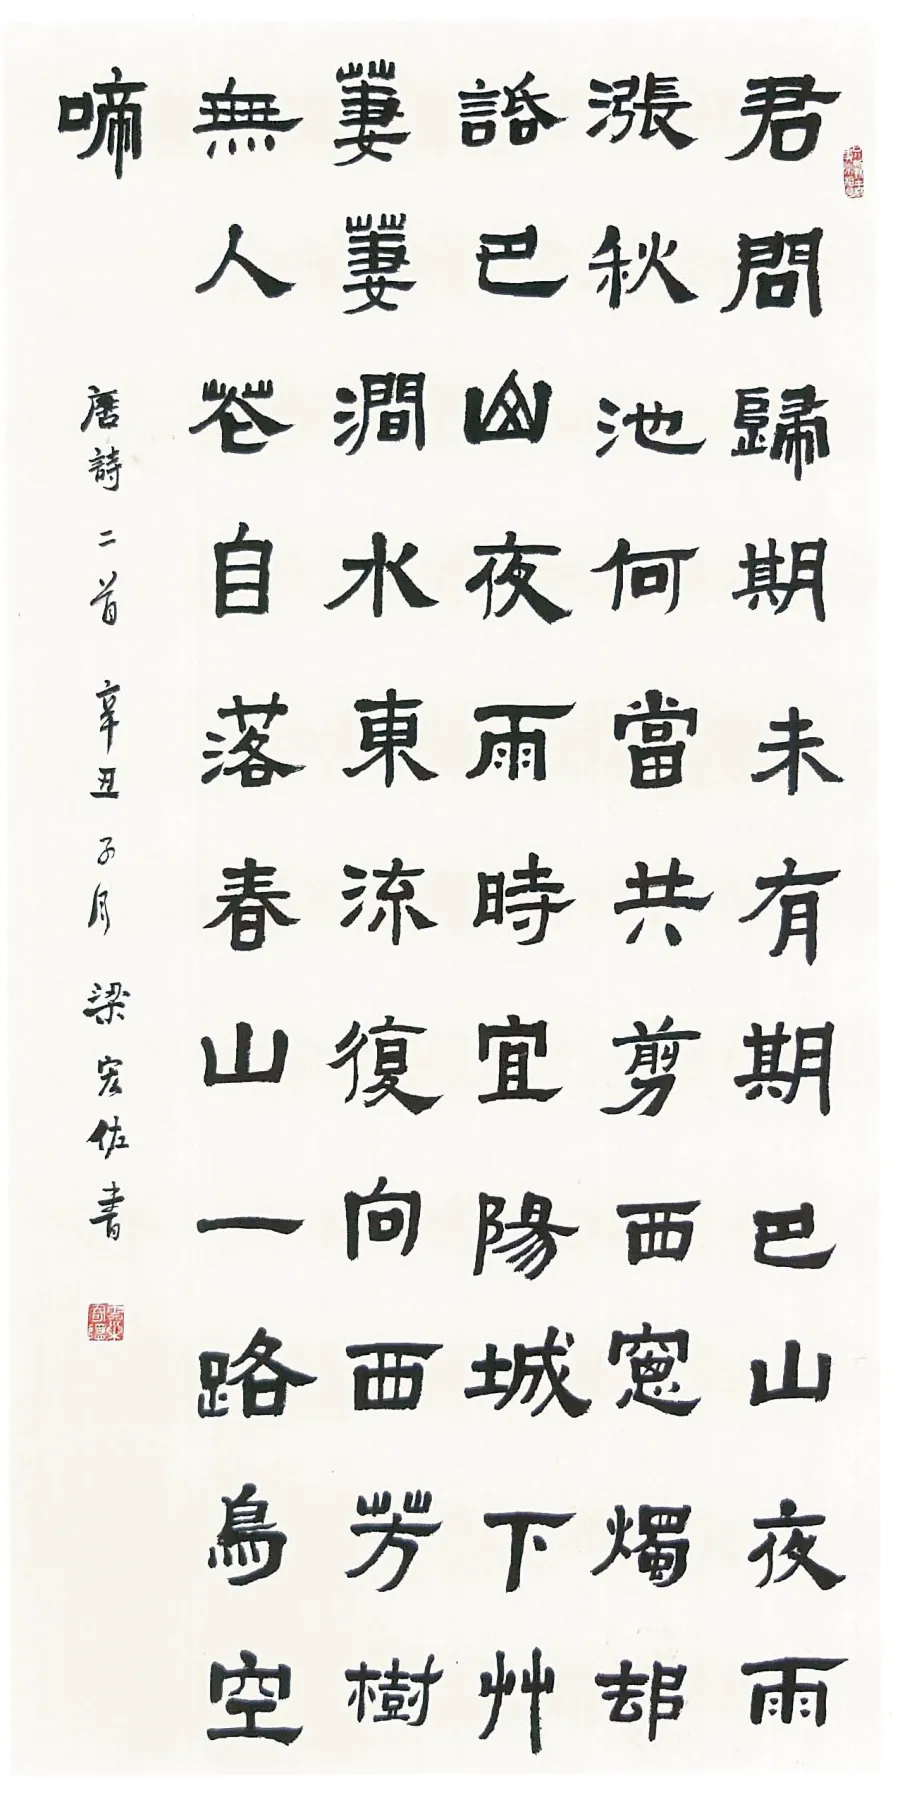 君問歸期未有期巴山夜雨
漲秋池何當共剪西窗燭却
話巴山夜雨時宜陽城下艸
萋萋澗水東流復向西芳樹
無人花自落春山一路鳥空
啼
唐詩二首 辛丑子月 梁宏佐書